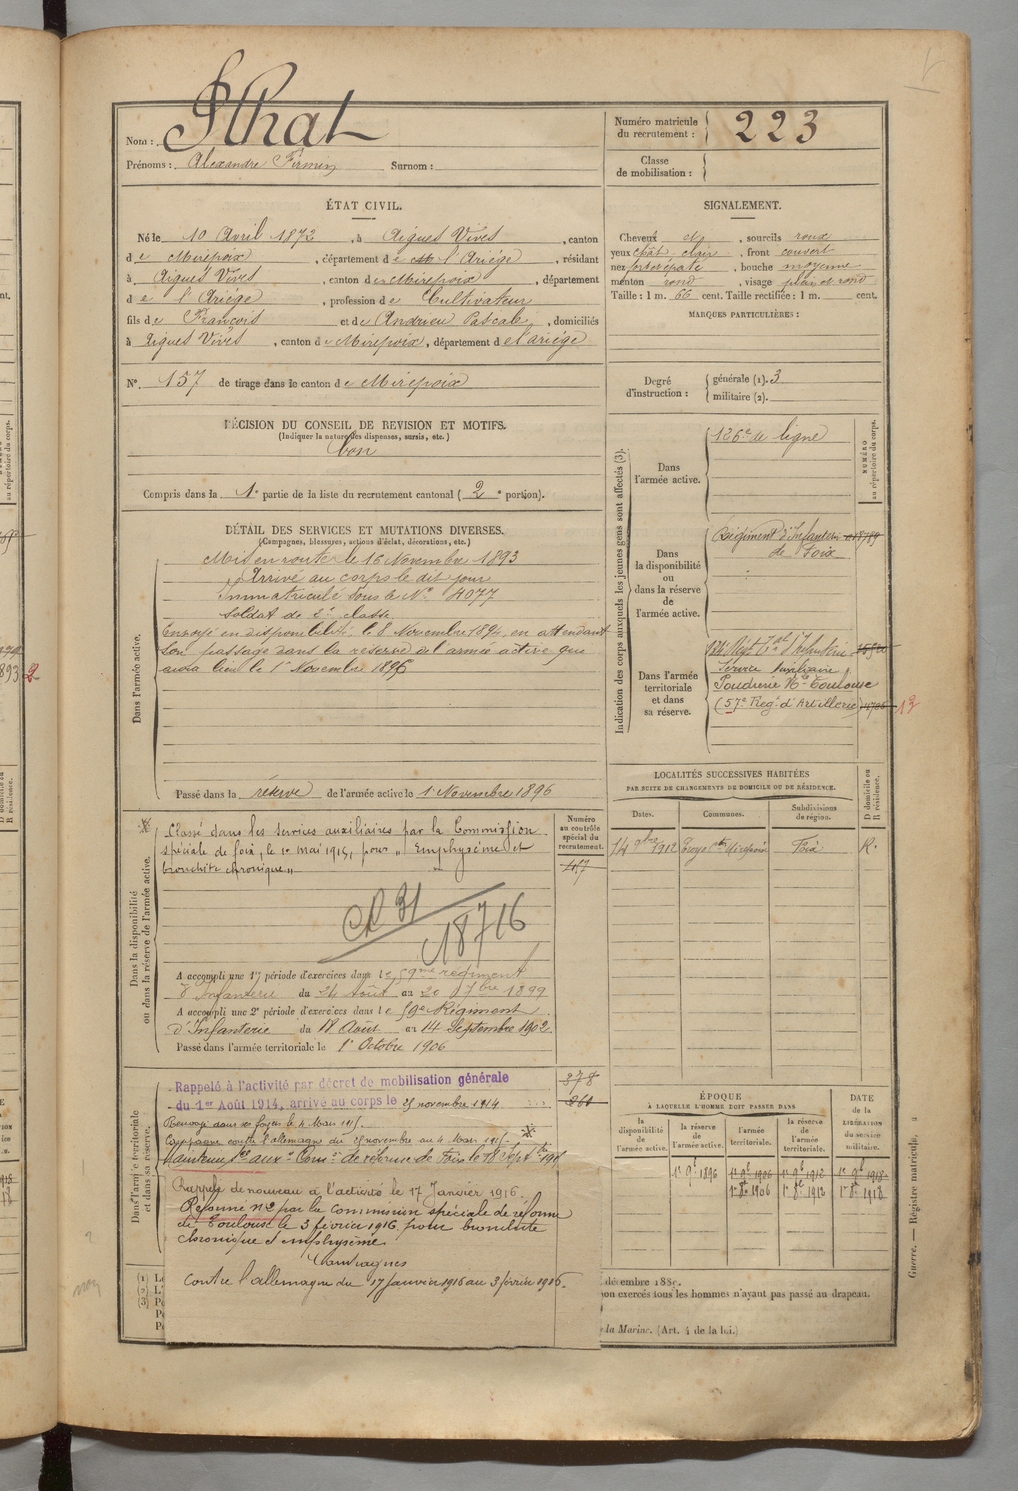 Nom : Ilhat
Prénoms : Alexandre Firmin Surnom :
Numéro matricule
du recrutement : 223
Classe
de mobilisation :
ÉTAT CIVIL.
Né le 10 Avril 1872, à Aigues Vives, canton
de Mirepoix, département de l'Ariège, résidant
à Aigues Vives, canton de Mirepoix, département
de l'Ariège, profession de Cultivateur
fils de François et de Andrieu Pascale, domiciliés
à Aigues Vives, canton de Mirepoix, département de l'ariège
N° 157 de tirage dans le canton de Mirepoix
SIGNALEMENT.
Cheveux , sourcils roux
yeux chât. clair, front couvert
nez , bouche moyenne
menton rond, visage plein et rond
Taille : 1 m. 66 cent. Taille rectifiée : 1 m. cent.
MARQUES PARTICULIÈRES :
Degré
d'instruction :
générale (1). 3
militaire (2).
DÉCISION DU CONSEIL DE REVISION ET MOTIFS.
(Indiquer la nature des dispenses, sursis, etc.)
bon
Compris dans la 1e partie de la liste du recrutement cantonal (2e portion).
DÉTAIL DES SERVICES ET MUTATIONS DIVERSES.
(Campagnes, blessures, actions d'éclat, décorations, etc.)
Dans l'armée active.
Mis en route le 16 Novembre 1893
Arrivé au corps le dit jour
Immatriculé sous le N° 4077
Soldat de 2e classe
Envoyé en disponibilité le 8 Novembre 1894 en attendant
son passage dans la réserve de l'armée active qui
aura lieu le 1er Novembre 1896
Passé dans la réserve de l'armée active le 1 Novembre 1896
Indication des corps auxquels les jeunes gens sont affectés (3).
NUMÉRO
au répertoire du corps.
Dans
l'armée active.
126e de ligne
Dans
la disponibilité
ou
dans la réserve
de
l'armée active.
Régiment d'Infanterie
de Foix
Dans l'armée
territoriale
et dans
sa réserve.
134e Régt Tal d'Infanterie
Service Auxiliaire
Poudrerie Nle Toulouse
(57e Reg. d'Artillerie)
12
LOCALITÉS SUCCESSIVES HABITÉES
PAR SUITE DE CHANGEMENTS DE DOMICILE OU DE RÉSIDENCE.
Dates.
Communes.
Subdivisions
de région.
D domicile ou
R résidence.
14 9bre 1912 Troye ctn Mirepoix Foix R.
Dans la disponibilité
ou dans la réserve de l'armée active.
Numéro
au contrôle
spécial du
recrutement.
457
Classé dans les services auxiliaires par la Commission
spéciale de foix, le 10 mai 1915, pour " Emphysème et
bronchite chronique "
CR 31
18716
A accompli une 1re période d'exercices dans le 59me régiment
d'Infanterie du 24 Août au 20 7bre 1899
A accompli une 2e période d'exercices dans le 59e Régiment
d'Infanterie du 18 Août au 14 Septembre 1902
Passé dans l'armée territoriale le 1er Octobre 1906
Dans l'armée territoriale
et dans sa réserve.
Rappelé à l'activité par décret de mobilisation générale
du 1er Août 1914, arrivé au corps le 25 novembre 1914
378
Renvoyé dans ses foyers le 4 Mars 1915.
Campagne contre l'allemagne du 25 novembre au 4 Mars 1915.
Maintenu Sce auxre Comon de réforme de Foix le 18 Septbre 1915
Rappelé de nouveau à l'activité le 17 Janvier 1916
Réformé n°2 par la commission spéciale de réforme
de Toulouse le 3 février 1916 pour bronchite
chronique et emphysème
Campagnes
Contre l'allemagne du 17 janvier 1916 au 3 février 1916.
ÉPOQUE
À LAQUELLE L'HOMME DOIT PASSER DANS
la
disponibilité
de
l'armée active.
la réserve
de
l'armée active.
l'armée
territoriale.
la réserve
de
l'armée
territoriale.
DATE
de la
LIBÉRATION
du service
militaire.
1er 9bre 1896 1er 9bre 1906 1er 9bre 1912 1er 9bre 1918
1er 8bre 1906 1er 8bre 1912 1er 8bre 1918
décembre 188 .
non exercés tous les hommes n'ayant pas passé au drapeau.
la Marine. (Art. 4 de la loi.)
Guerre. — Registre matricule.